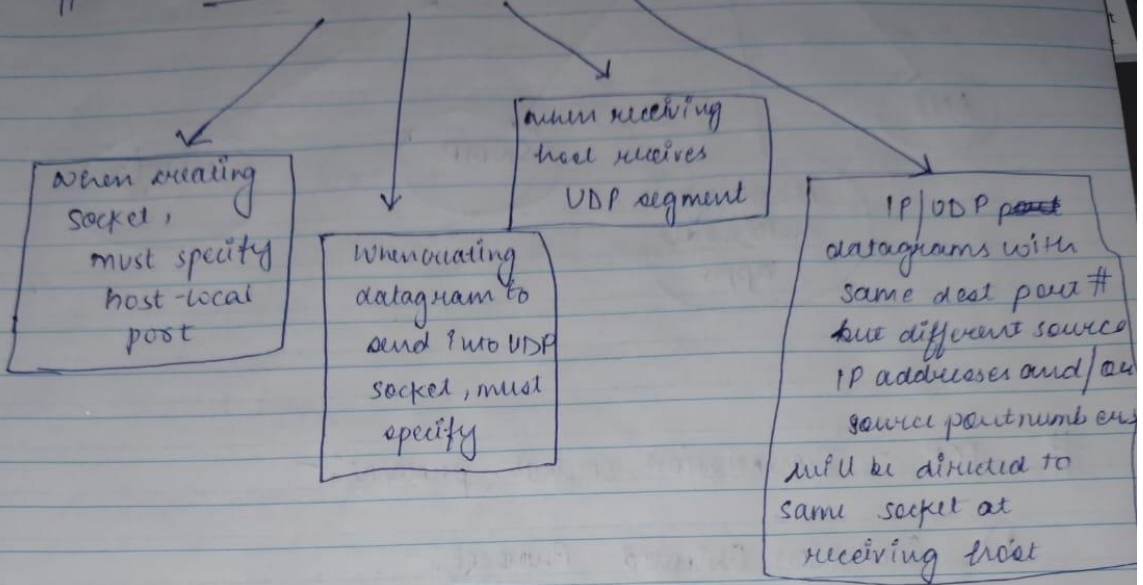 when creating
socket,
must specify
host-local
port
when creating
datagram to
send into UDP
socket, must
specify
when receiving
host receives
UDP segment
IP/UDP
datagrams with
same dest port #
but different source
IP addresses and/or
source port numbers
will be directed to
same socket at
receiving host